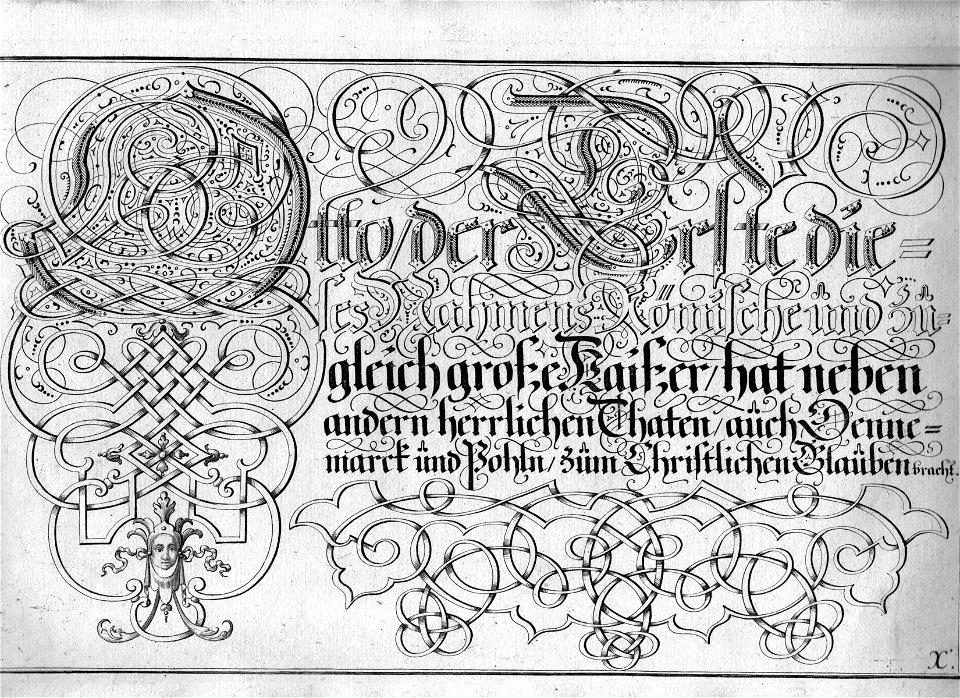 Otto/der Erste die=
ses Nahmens Römische und zu=
gleich große Kaißer/hat neben
andern herrlichen Thaten/auch Denne=
marck und Pohln/zum Christlichen Glauben bracht.
X.